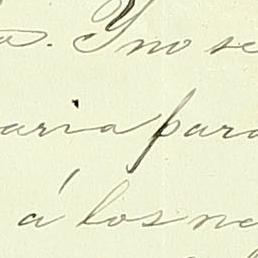 a. Y no se
aria para
á los no